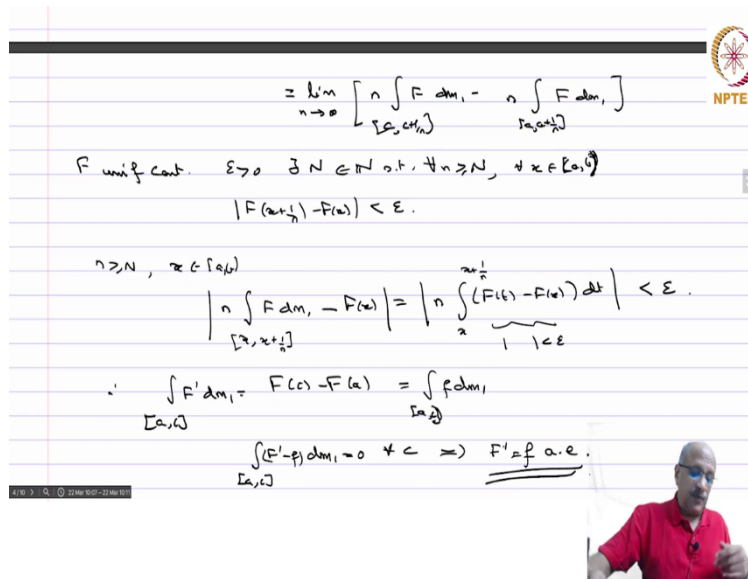 NPTE
= lim n→∞ [ n ∫[c, c+1/n] F dm₁ - n ∫[a, a+1/n] F dm₁ ]
F unif cont. ε>0 ∃ N ∈ ℕ s.t. ∀n≥N, ∀ x ∈ [a,b]
|F(x+1/n) - F(x)| < ε.
n≥N, x ∈ [a,b]
| n ∫[x, x+1/n] F dm₁ - F(x) | = | n ∫ₓ^{x+1/n} (F(t) - F(x)) dt | < ε.
| | < ε
∴ ∫[a,c] F' dm₁ = F(c) - F(a) = ∫[a,c] f dm₁
∫[a,c] (F'-f) dm₁ = 0 ∀ c => F' = f a.e.
4/10 22 Mar 10:07 - 22 Mar 10:11